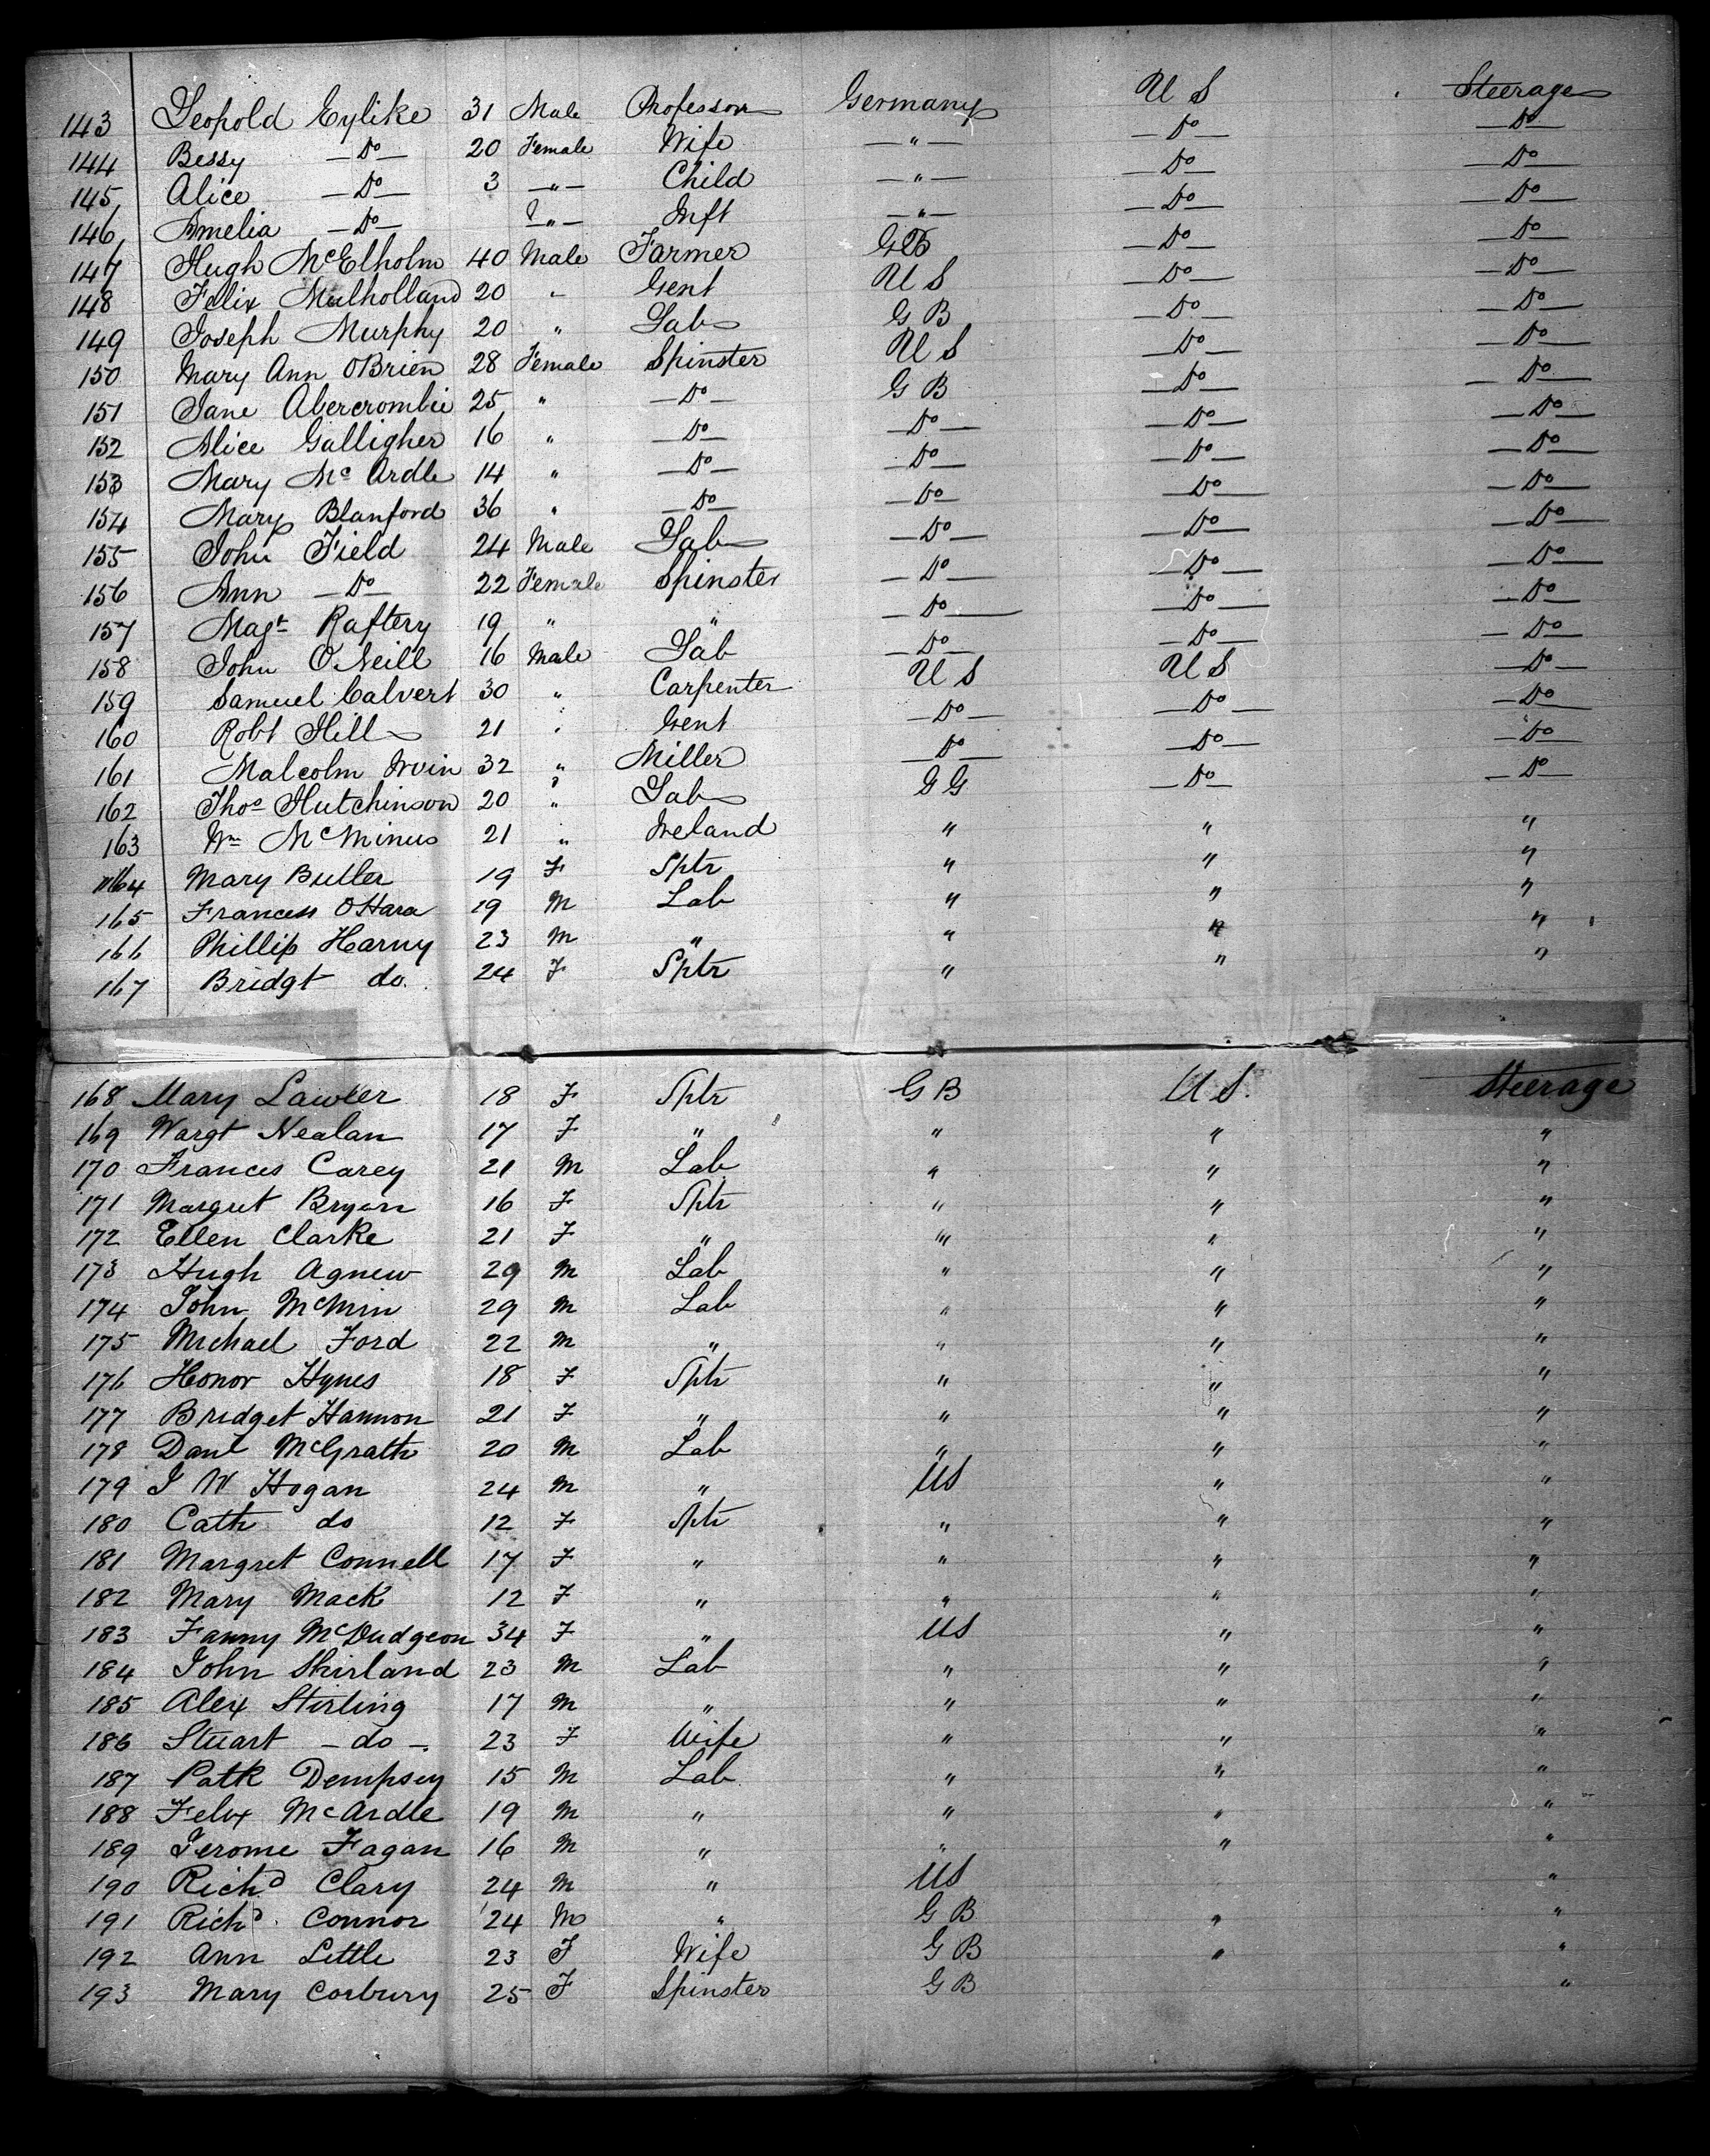 143 Leopold Eylike 31 Male Professor Germany U S Steerage
144 Bessy — Do — 20 Female Wife — " — — Do — — Do —
145 Alice — Do — 3 — " — Child — " — — Do — — Do —
146 Amelia — Do — — " — Inft — " — — Do — — Do —
147 Hugh McElholm 40 Male Farmer GB — Do — — Do —
148 Felix Mulholland 20 " Gent U S — Do — — Do —
149 Joseph Murphy 20 " Lab G B — Do — — Do —
150 Mary Ann OBrien 28 Female Spinster U S — Do — — Do —
151 Jane Abercrombie 25 " — Do — G B — Do — — Do —
152 Alice Galligher 16 " — Do — — Do — — Do — — Do —
153 Mary Mc Ardle 14 " — Do — — Do — — Do — — Do —
154 Mary Blanford 36 " — Do — — Do — — Do — — Do —
155 John Field 24 Male Lab — Do — — Do — — Do —
156 Ann — Do — 22 Female Spinster — Do — — Do — — Do —
157 Magt Raftery 19 " " — Do — — Do — — Do —
158 John O Neill 16 Male Lab — Do — — Do — — Do —
159 Samuel Calvert 30 " Carpenter U S U S — Do —
160 Robt Hill 21 " Gent — Do — — Do — — Do —
161 Malcolm Irvin 32 " Miller — Do — — Do — — Do —
162 Thos Hutchinson 20 " Lab G G — Do — — Do —
163 Wm McMinus 21 " Ireland " " "
164 Mary Butler 19 F Sptr " " "
165 Francess OHara 19 M Lab " " "
166 Phillip Harny 23 M " " " "
167 Bridgt do. 24 F Sptr " " "
168 Mary Lawler 18 F Sptr G B U S. Steerage
169 Wargt Nealan 17 F " " " "
170 Frances Carey 21 M Lab " " "
171 Margret Bryan 16 F Sptr " " "
172 Ellen Clarke 21 F " " " "
173 Hugh Agnew 29 M Lab " " "
174 John McMin 29 M Lab " " "
175 Michael Ford 22 M " " " "
176 Honor Hynes 18 F Sptr " " "
177 Bridget Hannon 21 F " " " "
178 Danl McGrath 20 M Lab " " "
179 J W Hogan 24 M " US " "
180 Cath do 12 F Sptr " " "
181 Margret Connell 17 F " " " "
182 Mary Mack 12 F " " " "
183 Fanny McDudgeon 34 F " US " "
184 John Shirland 23 M Lab " " "
185 Alex Stirling 17 M " " " "
186 Stuart — do — 23 F Wife " " "
187 Patk Dempsey 15 M Lab " " "
188 Felix McArdle 19 M " " " "
189 Jerome Fagan 16 M " " " "
190 Richd Clary 24 M " US "
191 Richd. Connor 24 M " G B " "
192 Ann Little 23 F Wife G B " "
193 Mary Corbury 25 F Spinster G B "